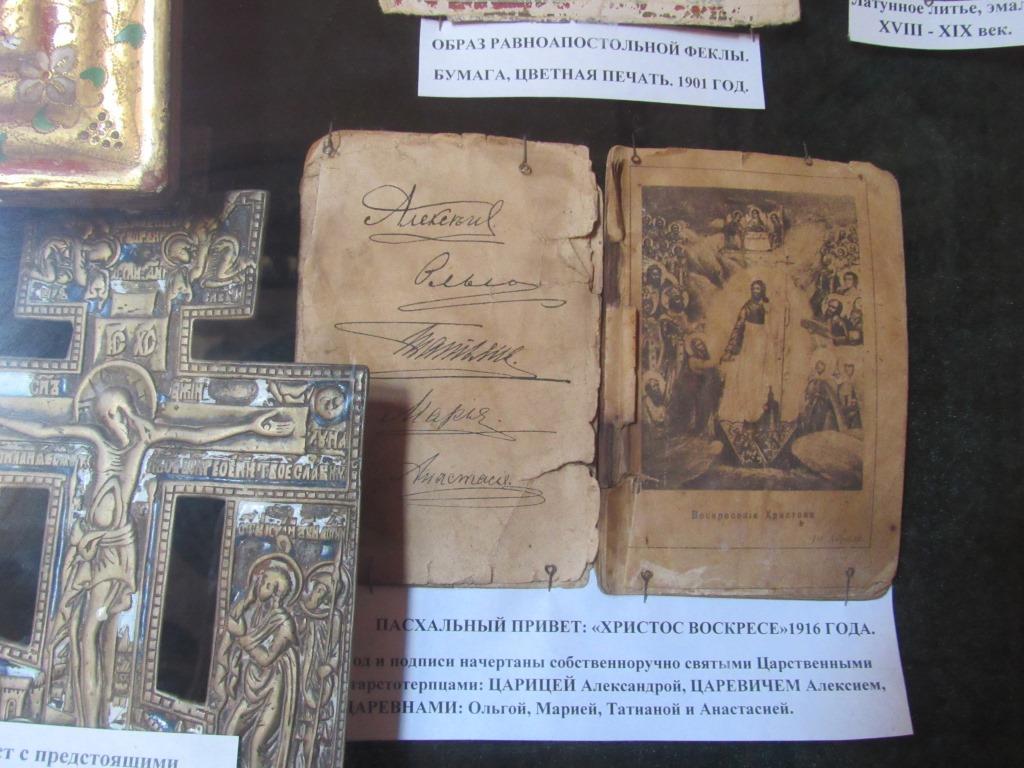 ОБРАЗ РАВНОАПОСТОЛЬНОЙ ФЕКЛЫ.
БУМАГА, ЦВЕТНАЯ ПЕЧАТЬ. 1901 ГОД.
Латунное литье, эмал
XVIII - XIX век.
Алексѣй
Ольга
Татьяна.
Марія.
Анастасія.
Воскресеніе Христово
ПАСХАЛЬНЫЙ ПРИВЕТ: «ХРИСТОС ВОСКРЕСЕ»1916 ГОДА.
од и подписи начертаны собственноручно святыми Царственными
арстотерпцами: ЦАРИЦЕЙ Александрой, ЦАРЕВИЧЕМ Алексием,
ЦАРЕВНАМИ: Ольгой, Марией, Татианой и Анастасией.
ет с предстоящими